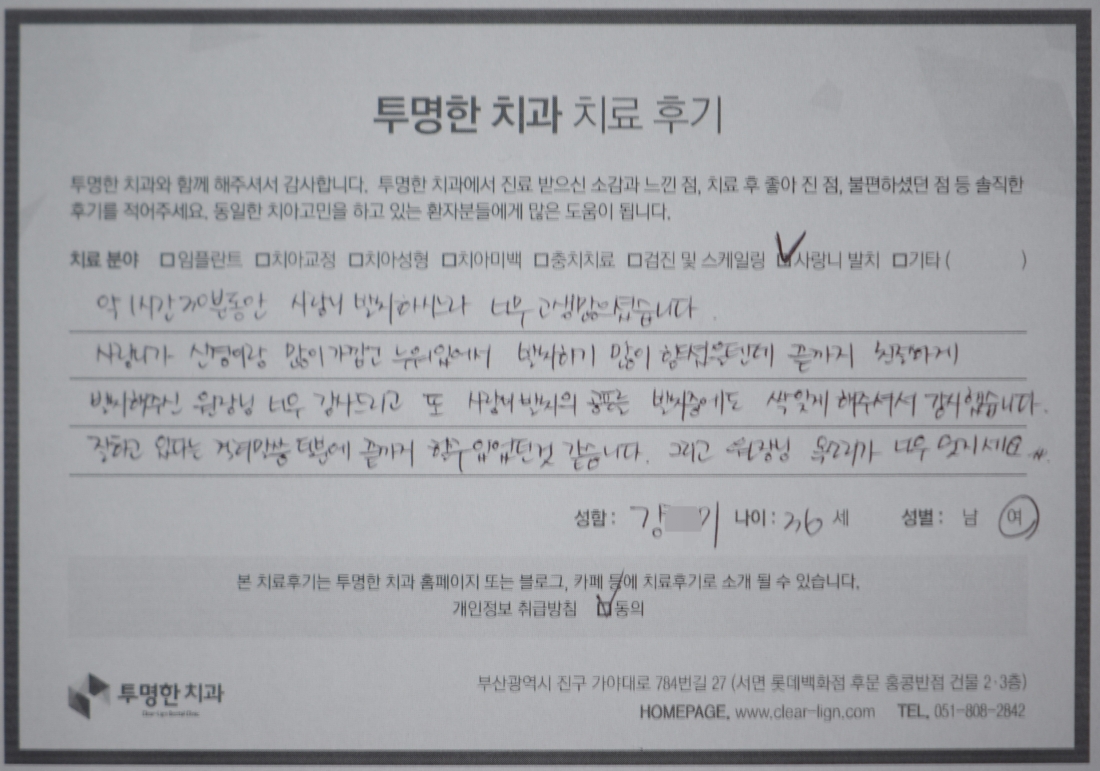 투명한 치과 치료 후기
투명한 치과와 함께 해주셔서 감사합니다. 투명한 치과에서 진료 받으신 소감과 느낀 점, 치료 후 좋아 진 점, 불편하셨던 점 등 솔직한
후기를 적어주세요. 동일한 치아고민을 하고 있는 환자분들에게 많은 도움이 됩니다.
치료 분야 □임플란트 □치아교정 □치아성형 □치아미백 □충치치료 □검진 및 스케일링 ☑사랑니 발치 □기타 ( )
약 1시간 20분동안 사랑니 발치하시느라 너무 고생많으셨습니다
사랑니가 신경이랑 많이 가깝고 누워있어서 발치하기 많이 힘드셨을텐데 끝까지 친절하게
발치해주신 원장님 너무 감사드리고 또 사랑니발치의 공포를 발치중에도 싹 잊게 해주셔서 감사했습니다.
잘하고 있다는 격려말씀 덕분에 끝까지 할수 있었던것 같습니다. 그리고 원장님 목소리가 너무 멋지세요
성함 : 강 기 나이 : 26 세 성별 : 남 여
본 치료후기는 투명한 치과 홈페이지 또는 블로그, 카페 등에 치료후기로 소개 될 수 있습니다.
개인정보 취급방침 ☑동의
투명한 치과
부산광역시 진구 가야대로 784번길 27 (서면 롯데백화점 후문 홍콩반점 건물 2·3층)
HOMEPAGE. www.clear-lign.com TEL. 051-808-2842